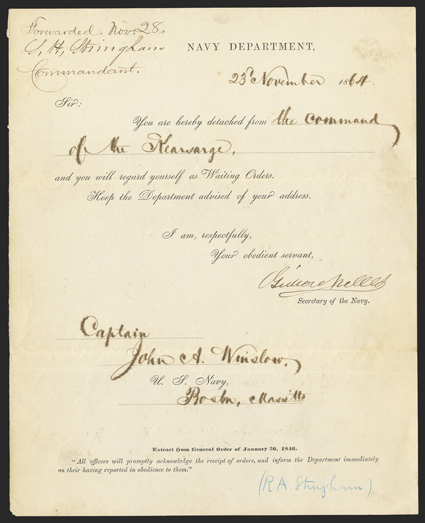 Forwarded. Nov. 28.
S. H. Stringham
Commandant.
NAVY DEPARTMENT,
23d November 1864.
Sir:
You are hereby detached from the command
of the Kearsarge,
and you will regard yourself as Waiting Orders.
Keep the Department advised of your address.
I am, respectfully,
Your obedient servant,
Gideon Welles
Secretary of the Navy.
Captain
John A. Winslow,
U. S. Navy,
Boston, Mass'tts
Extract from General Order of January 30, 1846.
"All officers will promptly acknowledge the receipt of orders, and inform the Department immediately
on their having reported in obedience to them."
(R. A. Stringham)